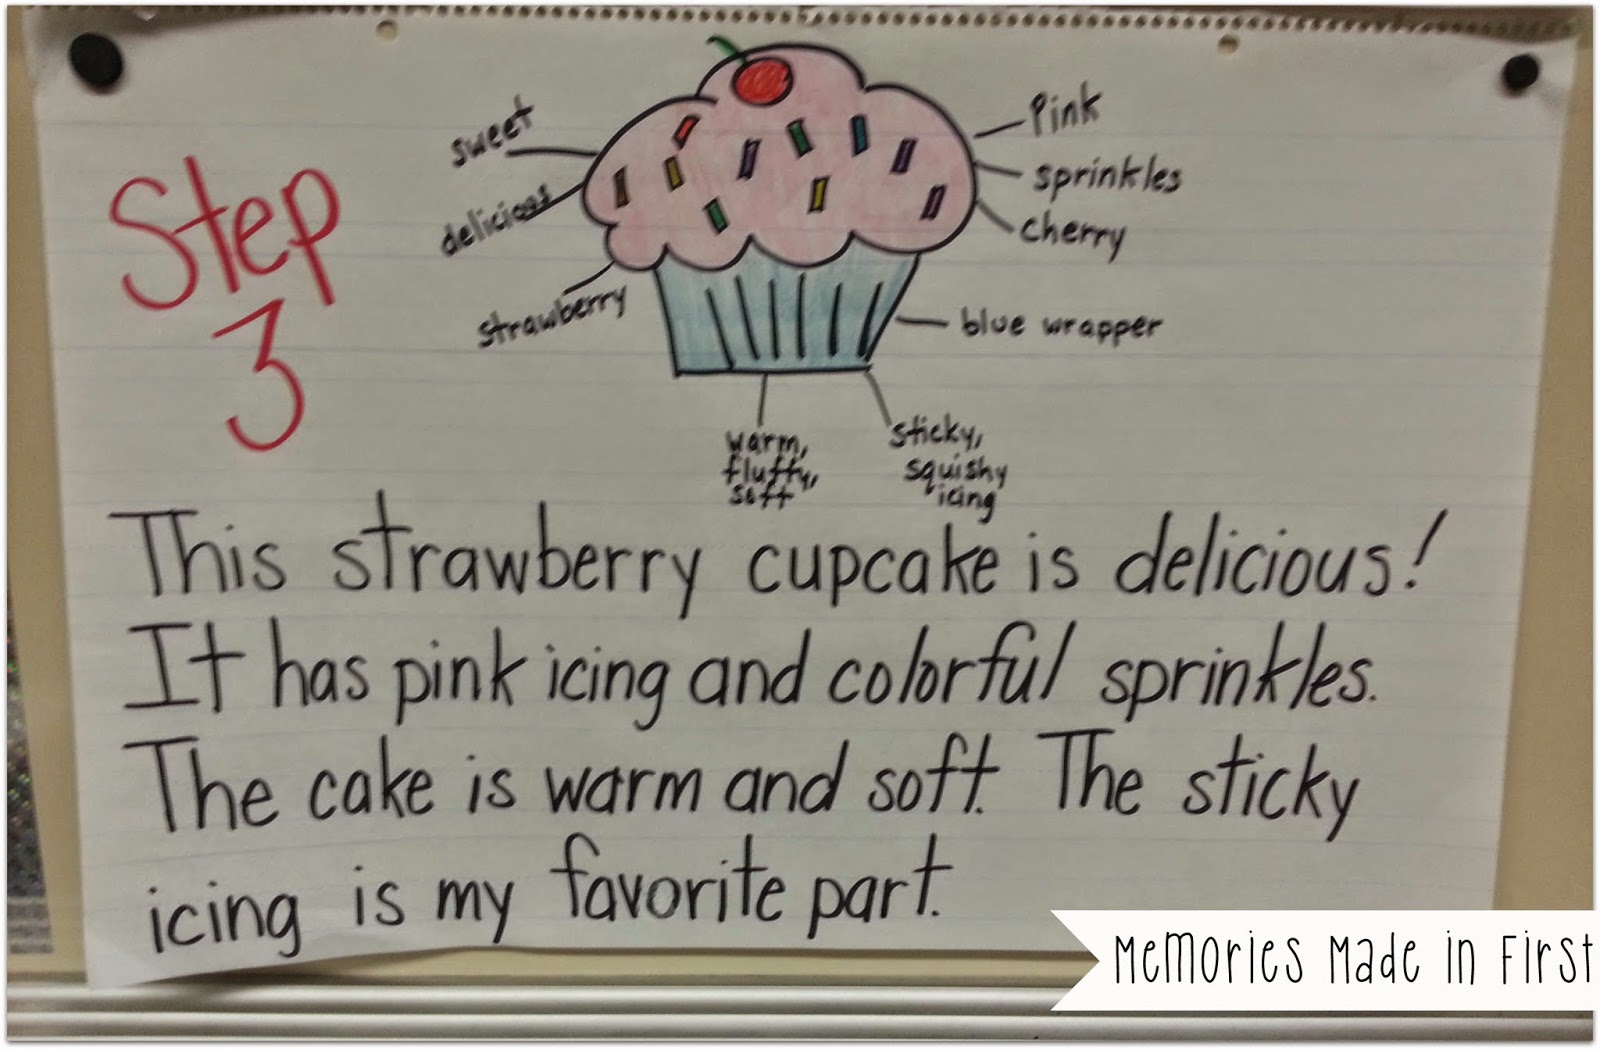 Step
3
sweet
delicious
strawberry
Pink
sprinkles
cherry
blue wrapper
warm,
fluffy,
soft
sticky,
squishy
icing
This strawberry cupcake is delicious!
It has pink icing and colorful sprinkles.
The cake is warm and soft. The sticky
icing is my favorite part.
Memories Made in First